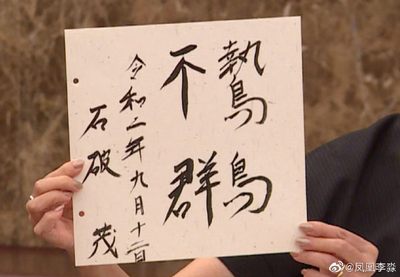 鷙鳥
不群
令和二年九月十二日
石破 茂
@凤凰李淼